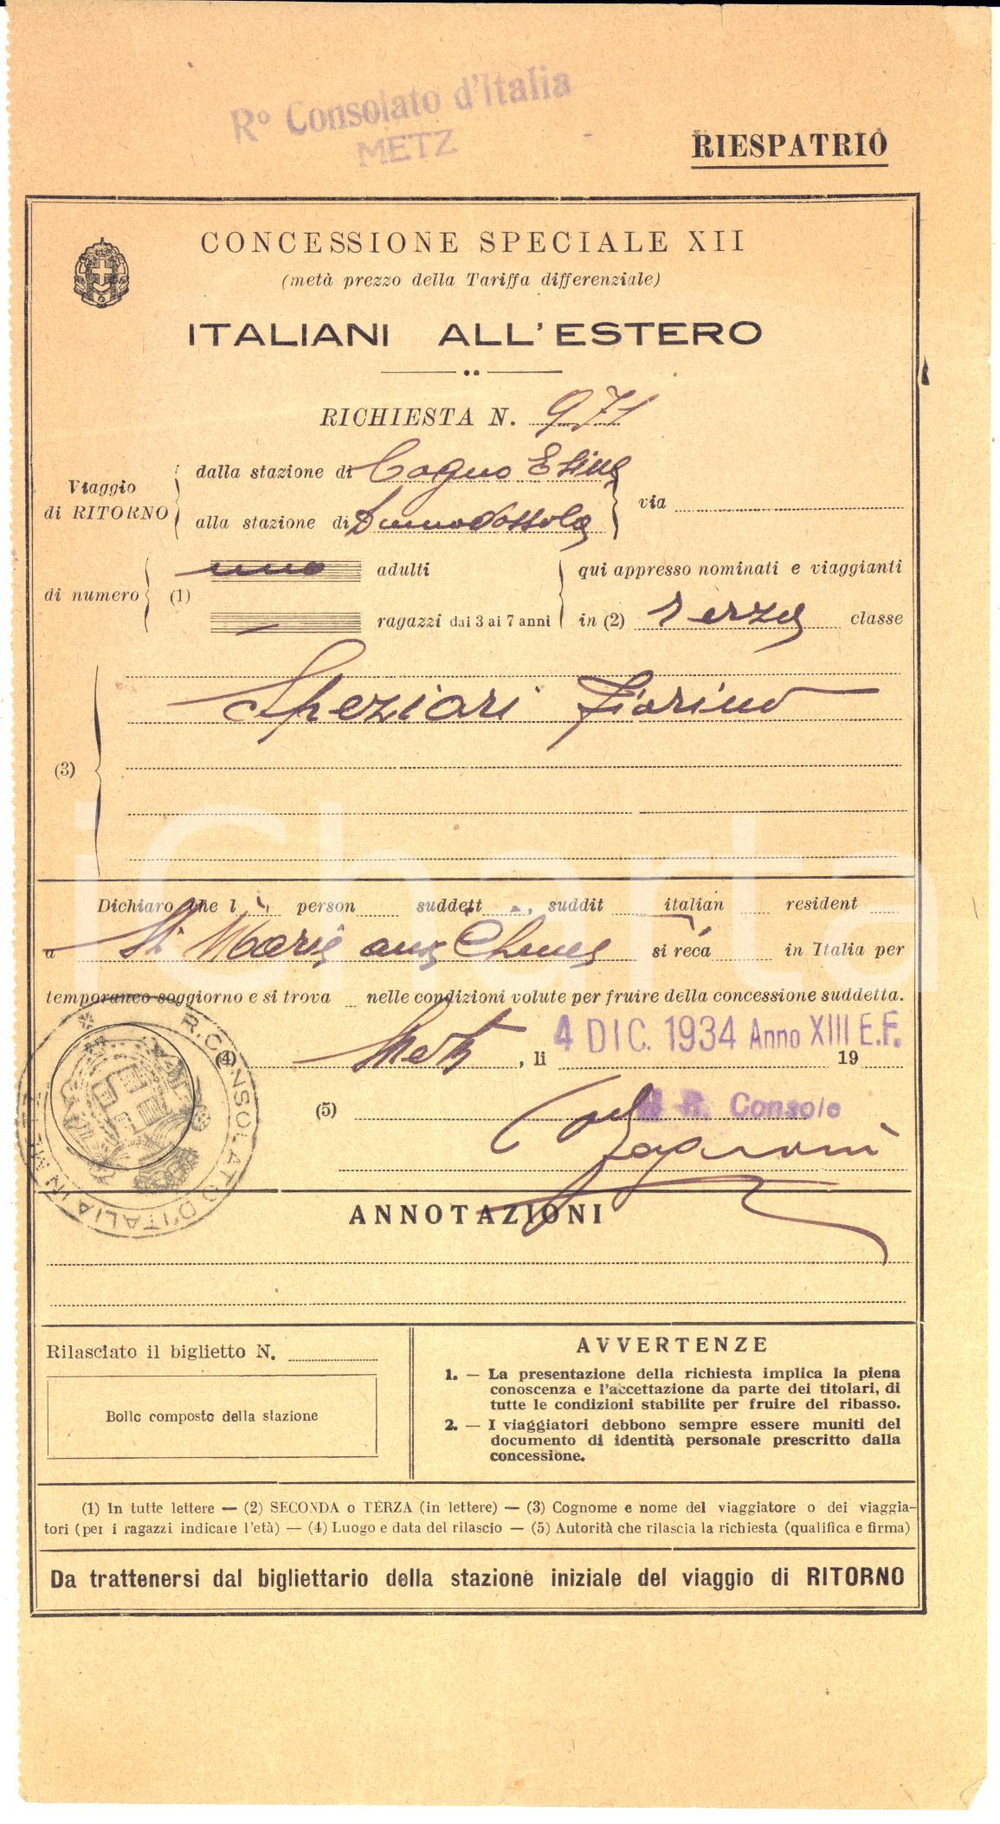 Rº Consolato d'Italia
METZ
RIESPATRIO
CONCESSIONE SPECIALE XII
(metà prezzo della Tariffa differenziale)
ITALIANI ALL'ESTERO
RICHIESTA N. 971
Viaggio di RITORNO
dalla stazione di Cogno Esine
alla stazione di Domodossola
via
di numero (1)
uno adulti
ragazzi dai 3 ai 7 anni
qui appresso nominati e viaggianti
in (2) Terza classe
(3) Speziari Fiorino
Dichiaro che l i person suddett , suddit italian resident
a St Marie aux Chenes si reca in Italia per
temporaneo soggiorno e si trova nelle condizioni volute per fruire della concessione suddetta.
(4) Metz, li 4 DIC. 1934 Anno XIII E.F. 19
R. CONSOLATO D'ITALIA IN METZ
(5) R. Console
ANNOTAZIONI
Rilasciato il biglietto N.
Bollo composto della stazione
AVVERTENZE
1. — La presentazione della richiesta implica la piena
conoscenza e l'accettazione da parte dei titolari, di
tutte le condizioni stabilite per fruire del ribasso.
2. — I viaggiatori debbono sempre essere muniti del
documento di identità personale prescritto dalla
concessione.
(1) In tutte lettere — (2) SECONDA o TERZA (in lettere) — (3) Cognome e nome del viaggiatore o dei viaggia-
tori (per i ragazzi indicare l'età) — (4) Luogo e data del rilascio — (5) Autorità che rilascia la richiesta (qualifica e firma)
Da trattenersi dal bigliettario della stazione iniziale del viaggio di RITORNO
iCharta